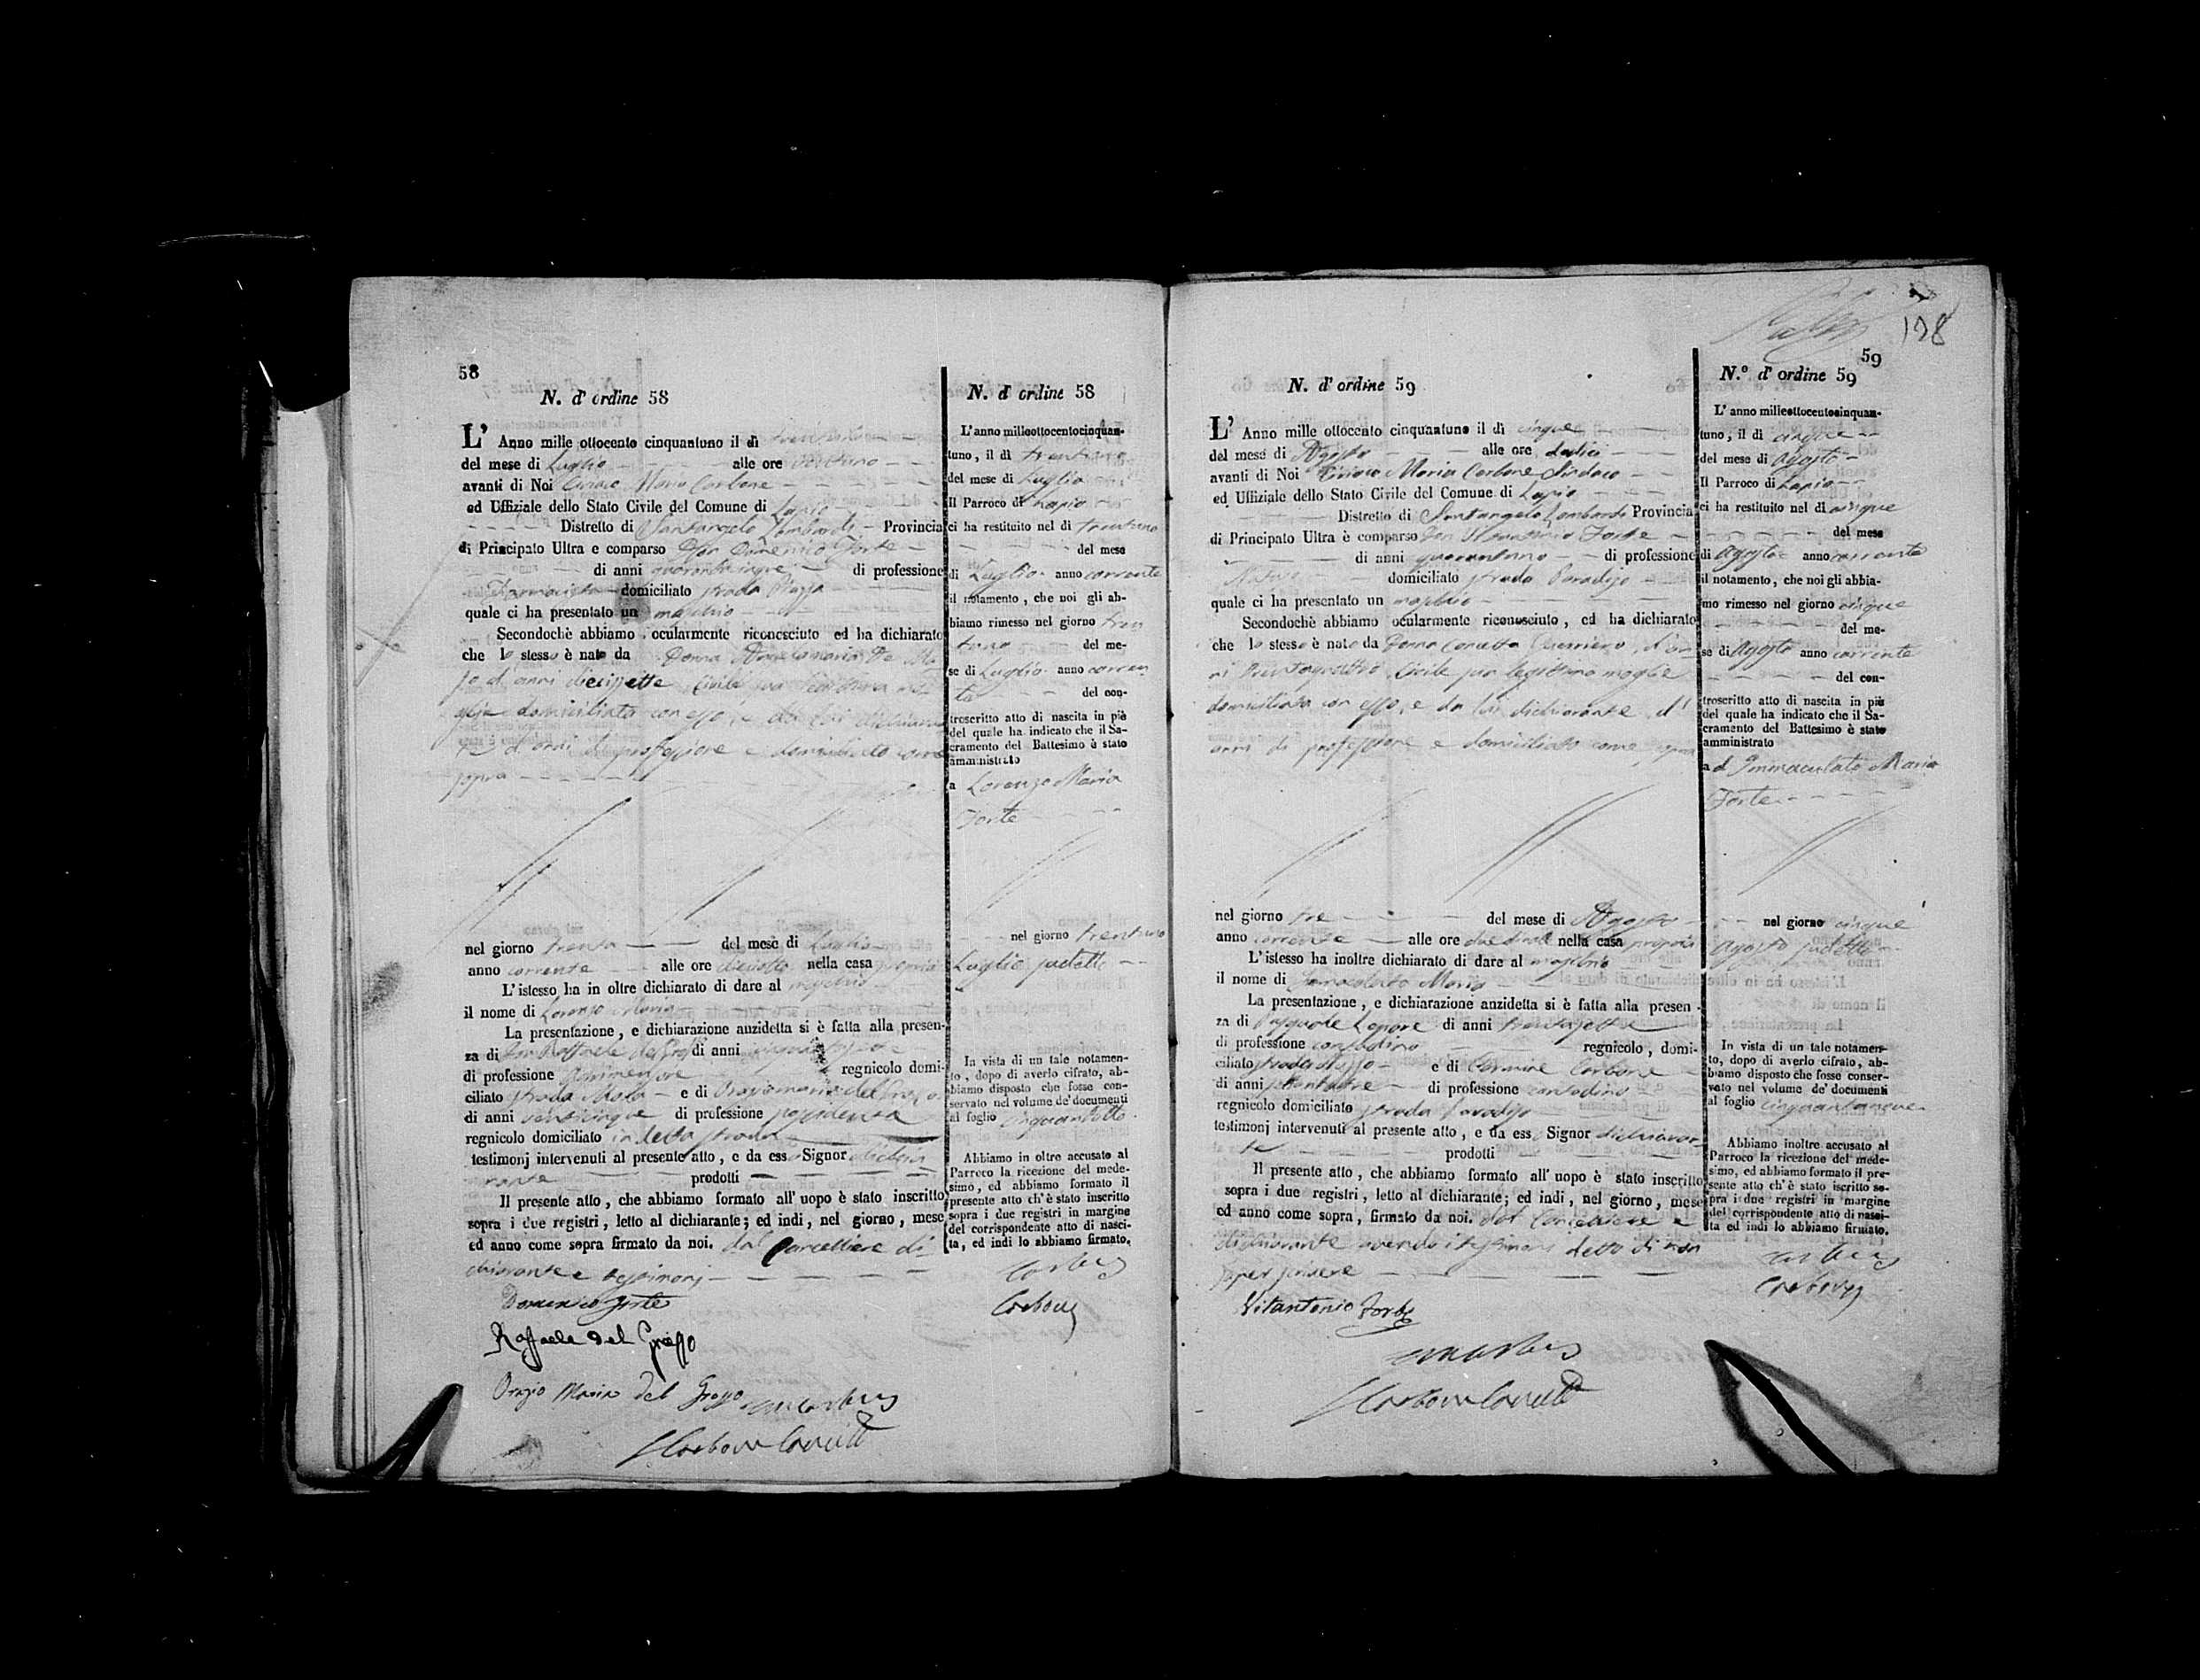 58
N. d' ordine 58
L' Anno mille ottocento cinquantuno il dì
del mese di Luglio alle ore ventuno
avanti di Noi Ciriaco Maria Carbone
ed Uffiziale dello Stato Civile del Comune di Lapio
Distretto di Santangelo Lombardi Provincia
di Principato Ultra e comparso Don Domenico Forte
di anni quarantacinque di professione
Farmacista domiciliato strada Piazza
quale ci ha presentato un maschio
Secondochè abbiamo ocularmente riconosciuto ed ha dichiarato
che lo stesso è nato da Donna
d'anni diecissette Civile sua legittima mo
glie domiciliata con esso, e da lui dichiaran
te d'anni di professione e domiciliato come
sopra
nel giorno trenta del mese di Luglio
anno corrente alle ore diciotto nella casa propria
L'istesso ha in oltre dichiarato di dare al maschio
il nome di Lorenzo Maria
La presentazione, e dichiarazione anzidetta si è fatta alla presen-
za di Don Raffaele del Grosso di anni
di professione regnicolo domi-
ciliato strada e di Oraziomaria del Grosso
di anni venticinque di professione possidenza
regnicolo domiciliato in detta strada
testimonj intervenuti al presente atto, e da esso Signor dichia
rante prodotti
Il presente atto, che abbiamo formato all' uopo è stato inscritto
sopra i due registri, letto al dichiarante; ed indi, nel giorno, mese
ed anno come sopra firmato da noi. dal Cancelliere di
chiarante e testimonj
Domenico Forte
Raffaele del Grosso
Orazio Maria del Grosso
N. d' ordine 58
L' anno milleottocentocinquan-
tuno, il dì trentuno
del mese di Luglio
Il Parroco di Lapio
ci ha restituito nel dì trentuno
del mese
di Luglio anno corrente
il notamento, che noi gli ab-
biamo rimesso nel giorno tren
tuno del me-
se di Luglio anno corren
te del con-
troscritto atto di nascita in piè
del quale ha indicato che il Sa-
cramento del Battesimo è stato
amministrato
a Lorenzo Maria
Forte
nel giorno trentuno
Luglio sudetto
In vista di un tale notamen-
to, dopo di averlo cifrato, ab-
biamo disposto che fosse con-
servato nel volume de' documenti
al foglio cinquantotto
Abbiamo in oltre accusato al
Parroco la ricezione del mede-
simo, ed abbiamo formato il
presente atto ch' è stato inscritto
sopra i due registri in margine
del corrispondente atto di nasci-
ta, ed indi lo abbiamo firmato.
Carbone
128
59
N. d' ordine 59
L' Anno mille ottocento cinquantuno il dì cinque
del mese di Agosto alle ore dodici
avanti di Noi Ciriaco Maria Carbone Sindaco
ed Uffiziale dello Stato Civile del Comune di Lapio
Distretto di Santangelo Lombardi Provincia
di Principato Ultra è comparso Don Forte
di anni quarantuno di professione
Notaio domiciliato strada Paradiso
quale ci ha presentato un maschio
Secondochè abbiamo ocularmente riconosciuto, ed ha dichiarato
che lo stesso è nato da Donna Concetta Guerriero, d'an
ni trentaquattro, Civile sua legittima moglie
domiciliata con esso, e da lui dichiarante, d'
anni di professione e domiciliato come sopra
nel giorno tre del mese di Agosto
anno corrente alle ore nella casa propria
L'istesso ha inoltre dichiarato di dare al maschio
il nome di Immacolato Maria
La presentazione, e dichiarazione anzidetta si è fatta alla presen-
za di Pasquale Lepore di anni trentasette
di professione contadino regnicolo, domi-
ciliato strada e di Carmine Carbone
di anni di professione contadino
regnicolo domiciliato strada Paradiso
testimonj intervenuti al presente atto, e da esso Signor dichiaran
te prodotti
Il presente atto, che abbiamo formato all' uopo è stato inscritto
sopra i due registri, letto al dichiarante; ed indi, nel giorno, mese
ed anno come sopra, firmato da noi. dal Cancelliere e
dichiarante avendo i testimonj detto di non
saper scrivere
Vitantonio Forte
N.º d' ordine 59
L' anno milleottocentocinquan-
tuno, il dì cinque
del mese di Agosto
Il Parroco di Lapio
ci ha restituito nel dì cinque
del mese
di Agosto anno corrente
il notamento, che noi gli abbia-
mo rimesso nel giorno cinque
del me-
se di Agosto anno corrente
del con-
troscritto atto di nascita in piè
del quale ha indicato che il Sa-
cramento del Battesimo è stato
amministrato
ad Immacolato Maria
Forte
nel giorno cinque
Agosto sudetto
In vista di un tale notamen-
to, dopo di averlo cifrato, ab-
biamo disposto che fosse conser-
vato nel volume de' documenti
al foglio cinquantanove
Abbiamo inoltre accusato al
Parroco la ricezione del mede-
simo, ed abbiamo formato il pre-
sente atto ch' è stato iscritto so-
pra i due registri in margine
del corrispondente atto di nasci-
ta ed indi lo abbiamo firmato.
Carbone